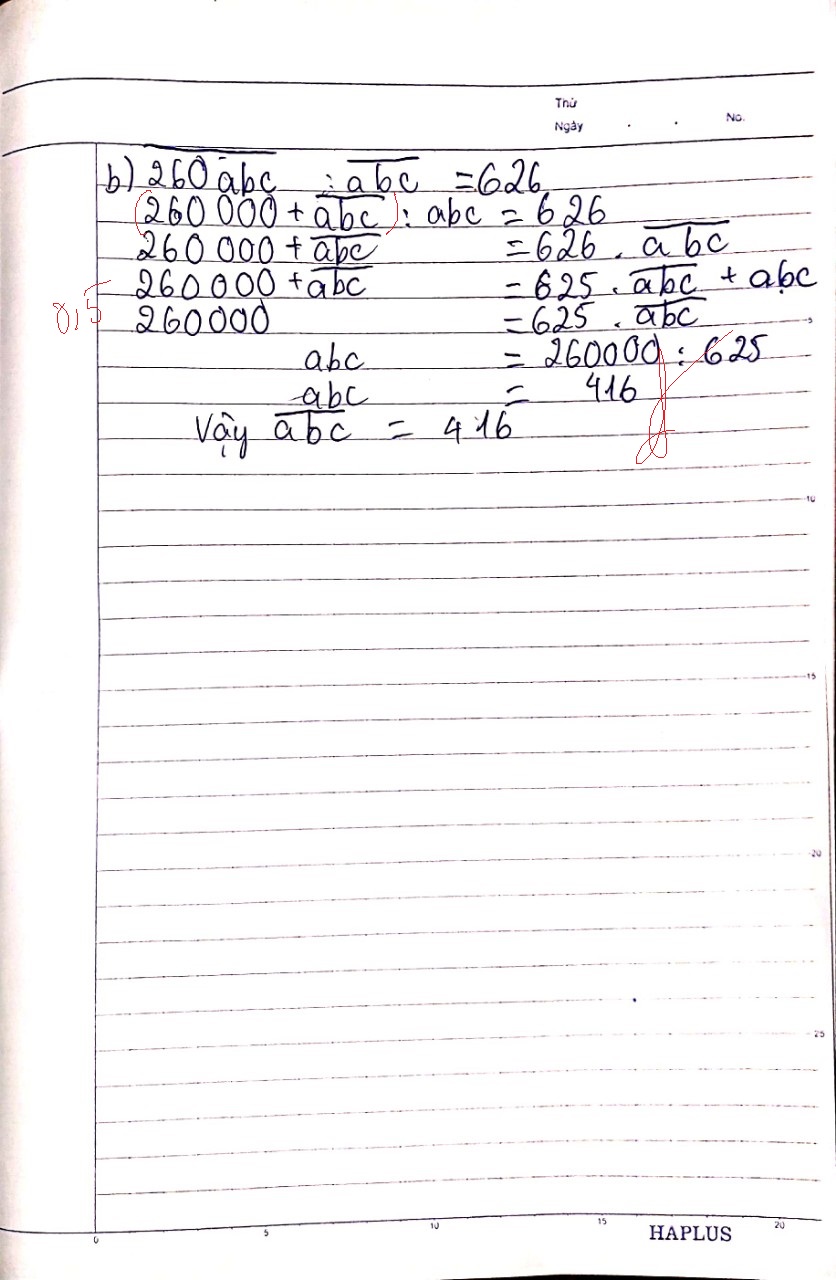 Thứ
Ngày . . No.
b) 260abc : abc = 626
(260 000 + abc) : abc = 626
260 000 + abc = 626 . abc
260 000 + abc = 625 . abc + abc
0,5 260000 = 625 . abc
abc = 260000 : 625
abc = 416
Vậy abc = 416
10
15
20
25
0 5 10 15 20
HAPLUS